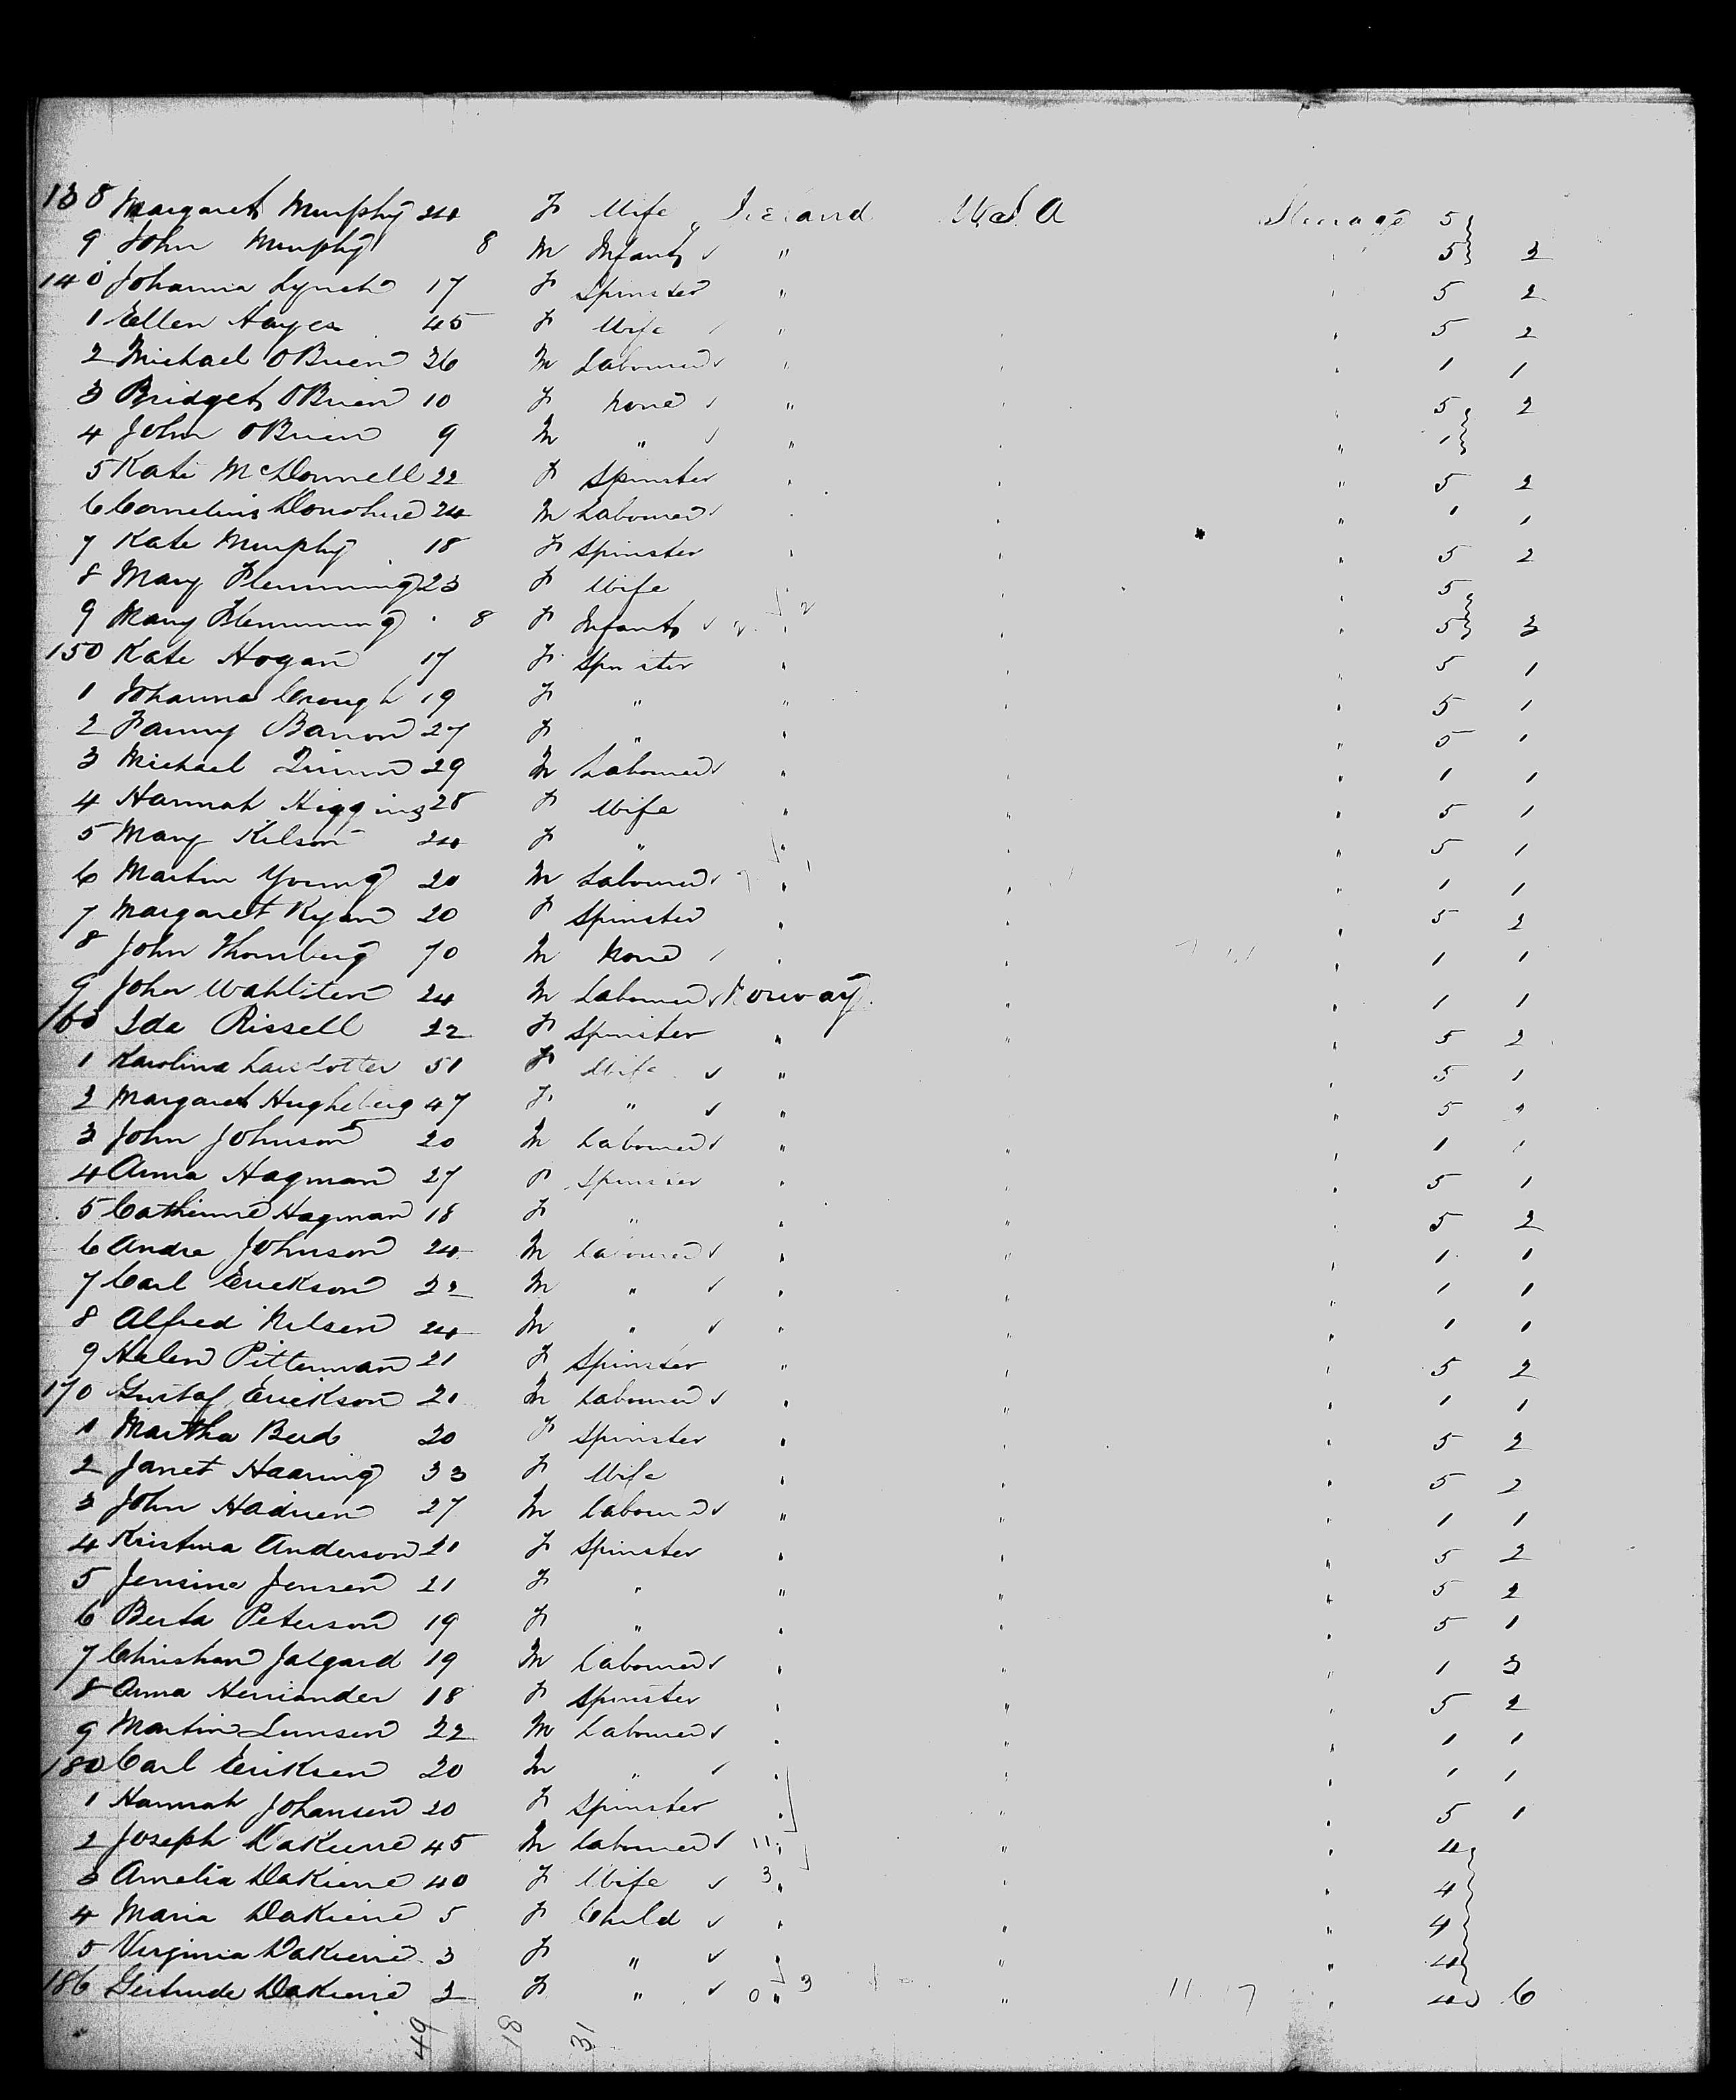 138 Margaret Murphy 24 F Wife Ireland U.S.A Steerage 5
9 John Murphy 8 M Infant " " 5 3
140 Johanna Lynch 17 F Spinster " " 5 2
1 Ellen Hayes 45 F Wife " " 5 2
2 Michael OBrien 26 M Labourer " " 1 1
3 Bridget OBrien 10 F None " " 5 2
4 John OBrien 9 M " " " 1
5 Kate McDonnell 22 F Spinster " " " 5 2
6 Cornelius Donohue 24 M Labourer " " " 1 1
7 Kate Murphy 18 F Spinster " " " 5 2
8 Mary Flemming 23 F Wife " " " 5
9 Mary Flemming 8 F Infant " " " 5 3
150 Kate Hogan 17 F Spinster " " " 5 1
1 Johanna Crough 19 F " " " " 5 1
2 Fanny Baron 27 F " " " 5 1
3 Michael Quinn 29 M Labourer " " " 1 1
4 Hannah Higgins 28 F Wife " " " 5 1
5 Mary Kilson 24 F " " " " 5 1
6 Martin Young 20 M Labourer " " " 1 1
7 Margaret Ryan 20 F Spinster " " " 5 2
8 John Thornberg 70 M None " " " 1 1
9 John Wahlsten 24 M Labourer Norway " " 1 1
160 Ida Rissell 22 F Spinster " " " 5 2
1 Karolina Larsdotter 51 F Wife " " 5 1
2 Margaret Hughelberg 47 F " " " " 5
3 John Johnson 20 M Labourer " " " 1 1
4 Anna Hagman 27 F Spinster " " " 5 1
5 Catherine Hagman 18 F " " " " 5 2
6 Andre Johnson 24 M Labourer " " " 1 1
7 Carl Erickson 22 M " " " " 1 1
8 Alfred Nelsen 24 M " " " " 1 1
9 Helen Pitterman 21 F Spinster " " " 5 2
170 Gustaf Erickson 21 M Labourer " " " 1 1
1 Martha Berd 20 F Spinster " " 5 2
2 Janet Haaring 33 F Wife " " " 5 2
3 John Hadisen 27 M Labourer " " " 1 1
4 Kristina Anderson 21 F Spinster " " " 5 2
5 Jensine Jensen 21 F " " " " 5 2
6 Berta Peterson 19 F " " " " 5 1
7 Christian Jalgard 19 M Labourer " " " 1 3
8 Anna Herriander 18 F Spinster " " " 5 2
9 Martin Lunsen 22 M Labourer " " " 1 1
180 Carl Eriksen 20 M " " " " 1 1
1 Hannah Johansen 20 F Spinster " " " 5 1
2 Joseph DaKiene 45 M Labourer 11 " " " 4
3 Amelia DaKiene 40 F Wife 3 " " " 4
4 Maria DaKiene 5 F Child " " " 4
5 Virginia DaKiene 3 F " " " " 4
186 Gertrude DaKiene 2 F " 0 " 3 " 11 17 " 4 6
49 18 31